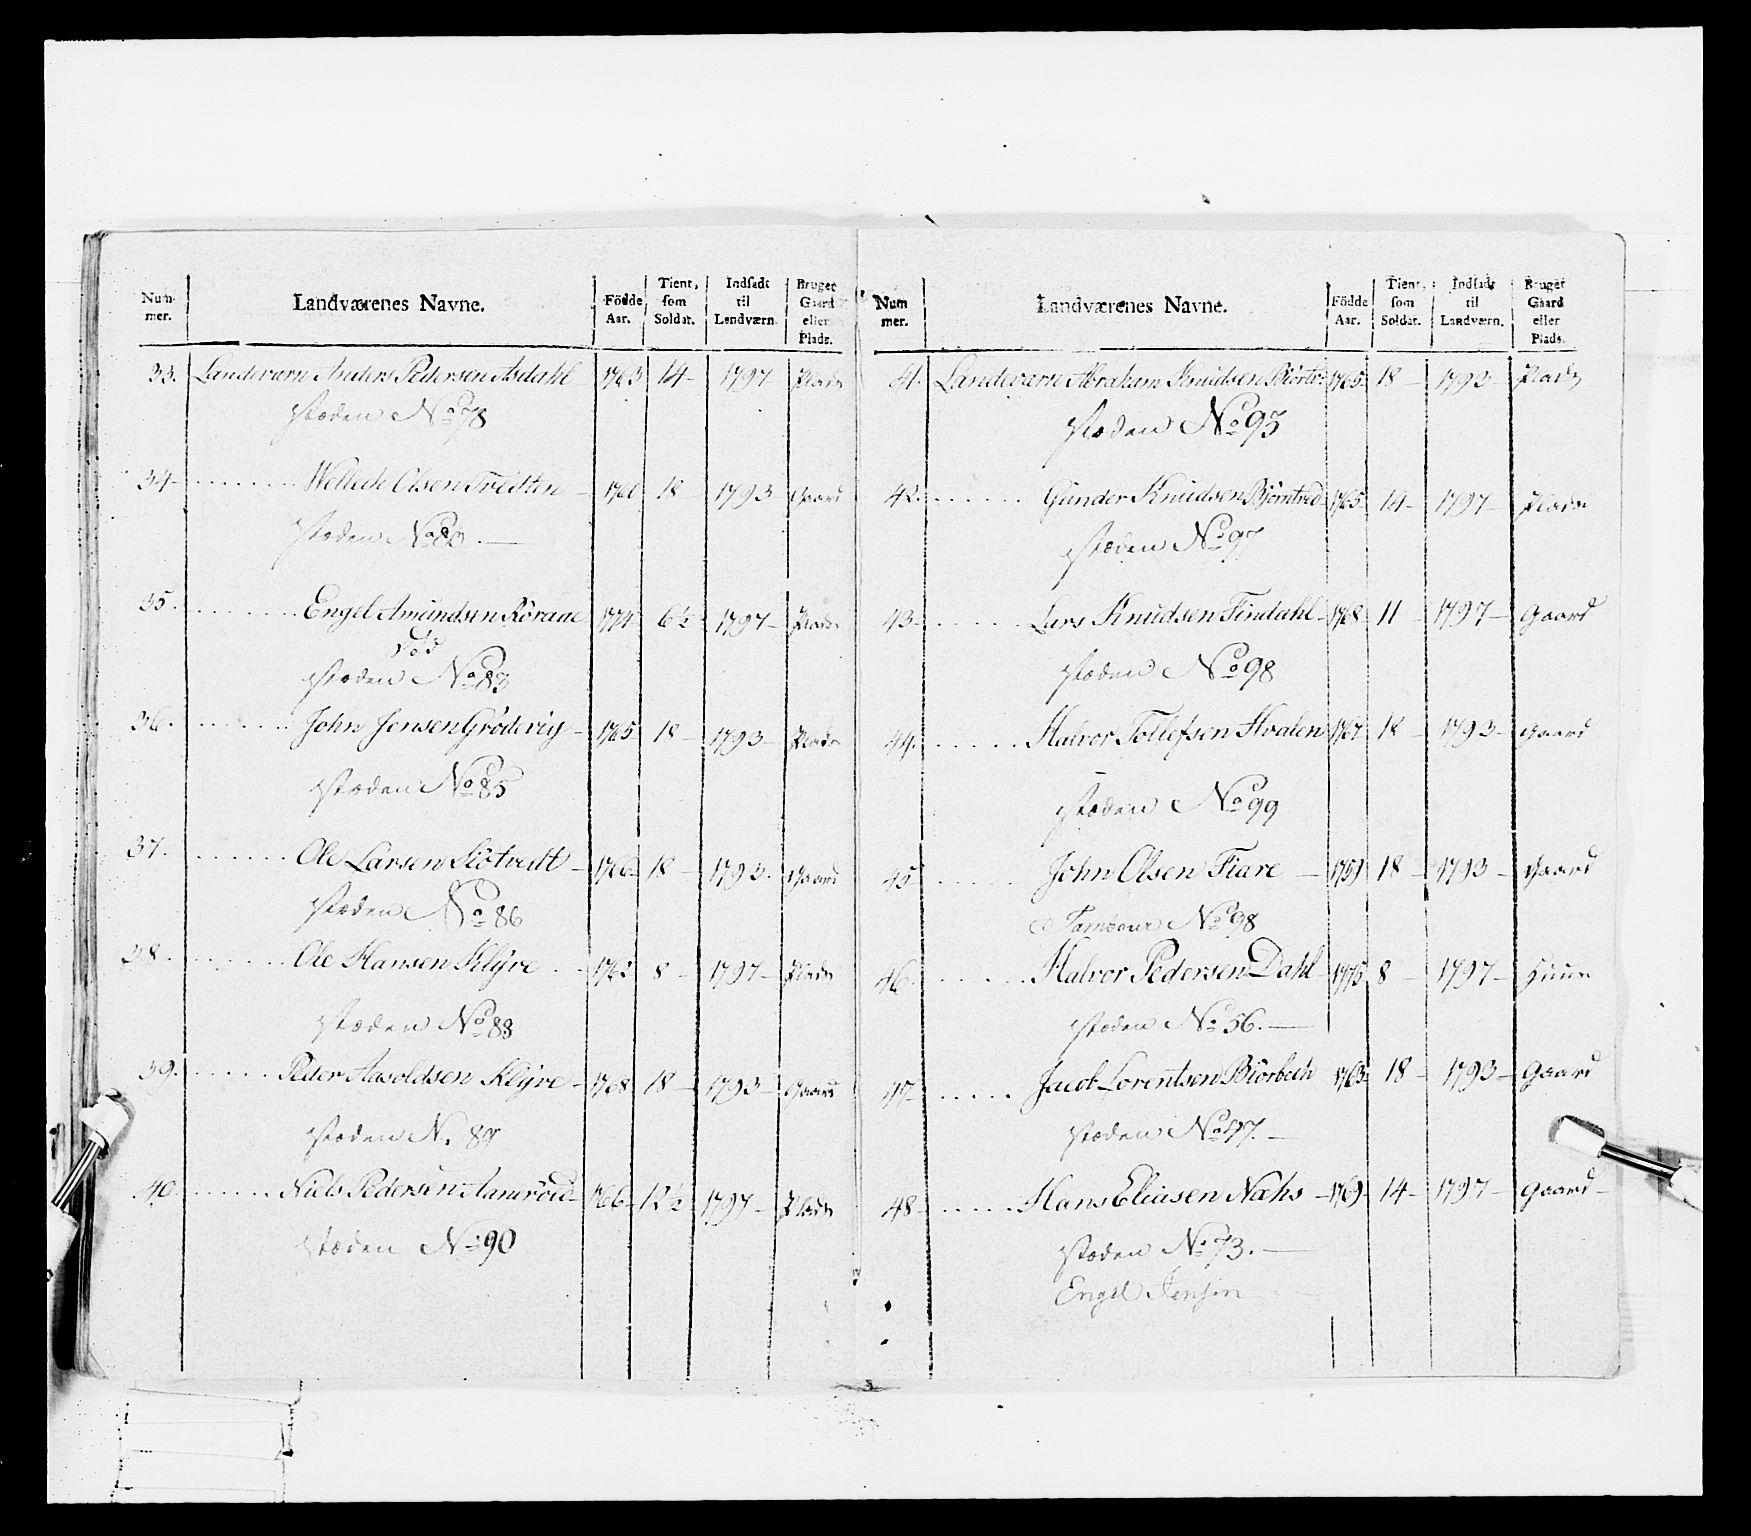 Num-mer. Landværenes Navne. Födde Aar. Tient som Soldat. Indsadt til Landværn. Bruger Gaard eller Plads.
33. Landeværn Anders Pedersen Asdahl 1763 14- 1797 Plads
staden No 78
34- Olsen Tredten - 18 - 1793 Gaard
staden No 80. —
35. Engel Amundsen Röraae 1774 6½ 1797- Plads
död
staden No 83
36. John Jensen Grödevig - 1765 18 - 1793- Plads
staden No 85
37. Ole Larsen - 1766 18 - 1793. Gaard
staden No 86
38. Ole Hansen Klÿve 8 - 1797- Plads
staden No 88
39. Peder Aasoldsen Klÿve - 1768 18 - 1793- Gaard
staden N. 89
40 Niels Pedersen 1766- 12½ 1797- Plads
staden No 90
Num mer. Landværenes Navne. Födde Aar. Tient som Soldat. Indsadt til Landværn. Bruger Gaard eller Plads.
41. Landeværn Abraham Knudsen 1765- 18 - 1793- Plads
staden No 95
42. Gunder Knudsen Björntved 1765- 14- 1797- Plads
staden No 97
43- Lars Knudsen Findahl- 1768- 11 1797- Gaard
staden No 98
44. Halvor Tollefsen Hvalen 1767 18 - 1793- Gaard
staden No 99
45 John Olsen Fiare - 1751 18 - 1793 - Gaard
Tambour No 98
46. Halvor Pedersen Dahl 1775 8 - 1797-
staden No 56. —
47- Jacob Lorentsen Biörbech 1763- 18 - 1793- Gaard
staden No 47. —
48- Hans Eliasen Næhs - 1769- 14- 1797- Gaard-
staden No 73. —
Engel Jensen